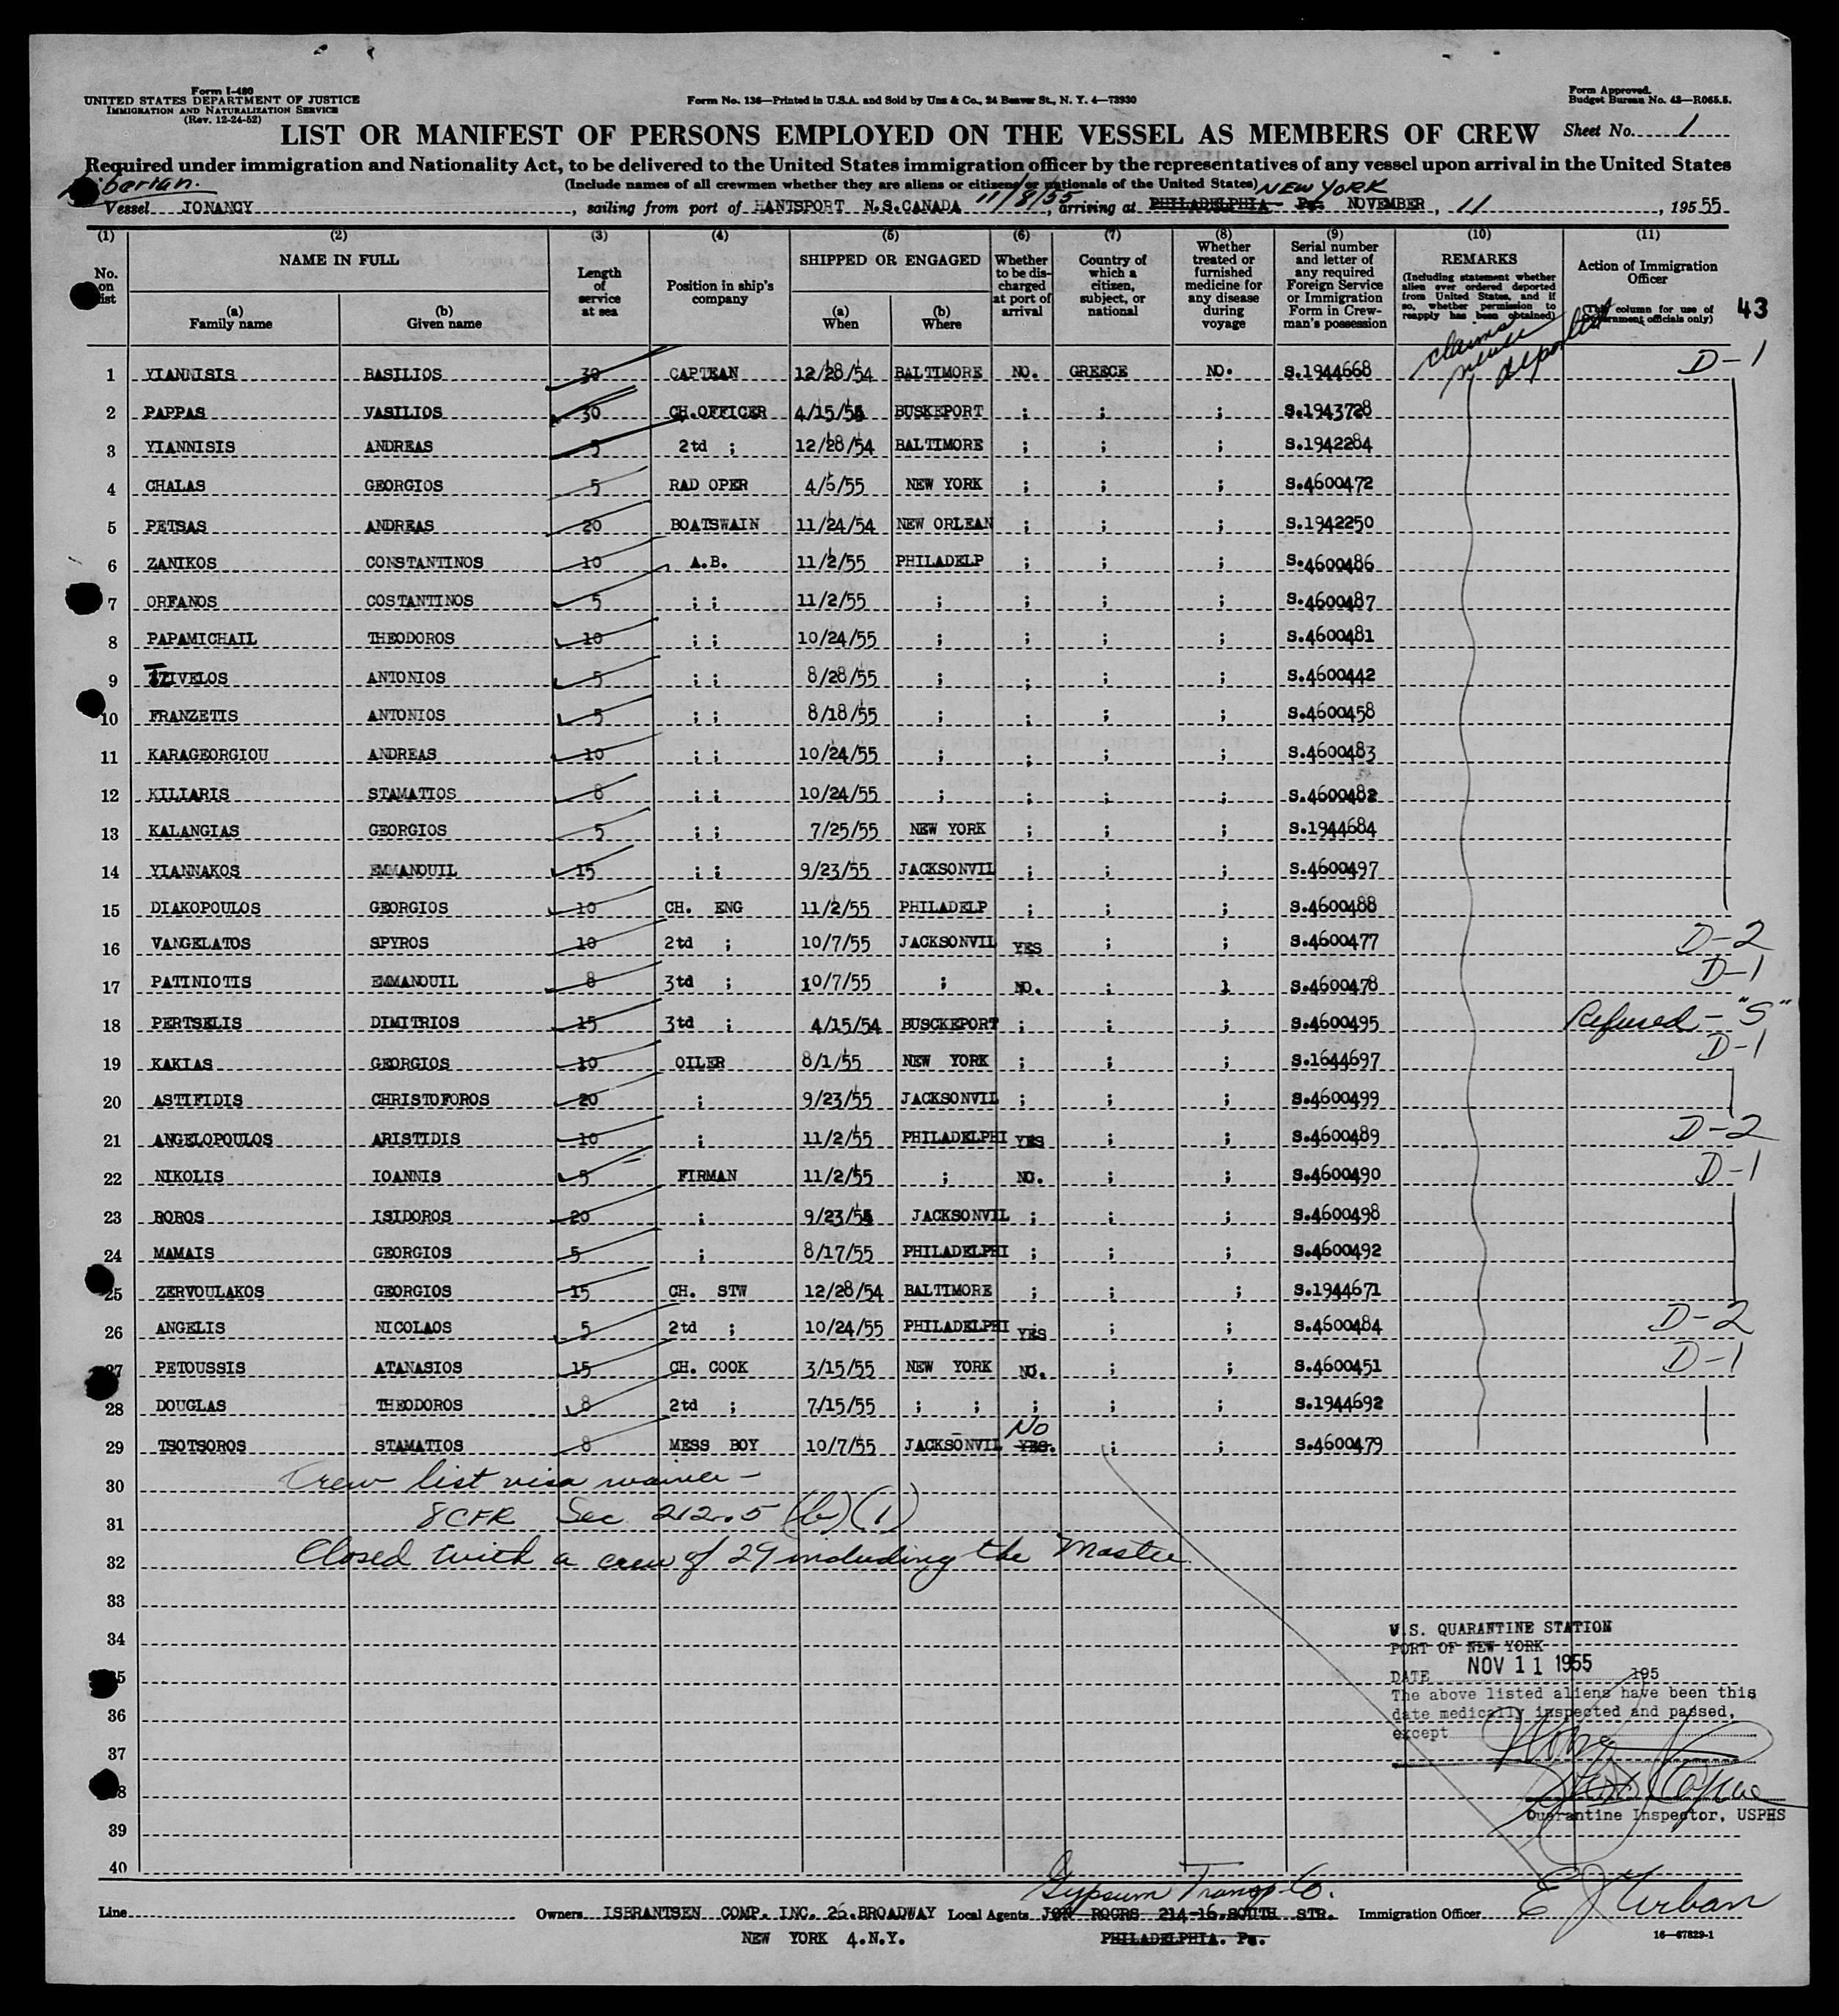 Form I-480
UNITED STATES DEPARTMENT OF JUSTICE
IMMIGRATION AND NATURALIZATION SERVICE
(Rev. 12-24-52)
Form No. 136—Printed in U.S.A. and Sold by Unz & Co., 24 Beaver St., N. Y. 4—73930
Form Approved.
Budget Bureau No. 43—R065.5.
LIST OR MANIFEST OF PERSONS EMPLOYED ON THE VESSEL AS MEMBERS OF CREW
Sheet No. 1
Required under immigration and Nationality Act, to be delivered to the United States immigration officer by the representatives of any vessel upon arrival in the United States
(Include names of all crewmen whether they are aliens or citizens or nationals of the United States)
Liberian.
11/8/55 NEW YORK
Vessel JONANCY, sailing from port of HANTSPORT N.S.CANADA, arriving at PHILADELPHIA Pa. NOVEMBER, 11, 195 55
(1) (2) (3) (4) (5) (6) (7) (8) (9) (10) (11)
No. on list
NAME IN FULL
(a) Family name
(b) Given name
Length of service at sea
Position in ship's company
SHIPPED OR ENGAGED
(a) When
(b) Where
Whether to be discharged at port of arrival
Country of which a citizen, subject, or national
Whether treated or furnished medicine for any disease during voyage
Serial number and letter of any required Foreign Service or Immigration Form in Crewman's possession
REMARKS
(Including statement whether alien ever ordered deported from United States, and if so, whether permission to reapply has been obtained)
Action of Immigration Officer
(This column for use of Government officials only)
43
claims never deported
1 YIANNISIS BASILIOS 30 CAPTEAN 12/28/54 BALTIMORE NO. GREECE NO. S.1944668 D-1
2 PAPPAS VASILIOS 30 CH.OFFICER 4/15/55 BUSKEPORT ; ; ; S.1943728
3 YIANNISIS ANDREAS 5 2td ; 12/28/54 BALTIMORE ; ; ; S.1942284
4 CHALAS GEORGIOS 5 RAD OPER 4/5/55 NEW YORK ; ; ; S.4600472
5 PETSAS ANDREAS 20 BOATSWAIN 11/24/54 NEW ORLEAN ; ; ; S.1942250
6 ZANIKOS CONSTANTINOS 10 A.B. 11/2/55 PHILADELP ; ; ; S.4600486
7 ORFANOS COSTANTINOS 5 ; ; 11/2/55 ; ; ; ; S.4600487
8 PAPAMICHAIL THEODOROS 10 ; ; 10/24/55 ; ; ; ; S.4600481
9 TZIVELOS ANTONIOS 5 ; ; 8/28/55 ; ; ; ; S.4600442
10 FRANZETIS ANTONIOS 5 ; ; 8/18/55 ; ; ; ; S.4600458
11 KARAGEORGIOU ANDREAS 10 ; ; 10/24/55 ; ; ; ; S.4600483
12 KILIARIS STAMATIOS 8 ; ; 10/24/55 ; ; ; ; S.4600482
13 KALANGIAS GEORGIOS 5 ; ; 7/25/55 NEW YORK ; ; ; S.1944684
14 YIANNAKOS EMMANOUIL 15 ; ; 9/23/55 JACKSONVIL ; ; ; S.4600497
15 DIAKOPOULOS GEORGIOS 10 CH. ENG 11/2/55 PHILADELP ; ; ; S.4600488
16 VANGELATOS SPYROS 10 2td ; 10/7/55 JACKSONVIL YES ; ; S.4600477 D-2
17 PATINIOTIS EMMANOUIL 8 3td ; 10/7/55 ; NO. ; 1 S.4600478 D-1
18 PERTSELIS DIMITRIOS 15 3td ; 4/15/54 BUSCKEPORT ; ; ; S.4600495 Refused - "S"
19 KAKIAS GEORGIOS 10 OILER 8/1/55 NEW YORK ; ; ; S.1644697 D-1
20 ASTIFIDIS CHRISTOFOROS 20 ; 9/23/55 JACKSONVIL ; ; ; S.4600499
21 ANGELOPOULOS ARISTIDIS 10 ; 11/2/55 PHILADELPHI YES ; ; S.4600489 D-2
22 NIKOLIS IOANNIS 5 FIRMAN 11/2/55 ; NO. ; ; S.4600490 D-1
23 ROROS ISIDOROS 20 ; 9/23/55 JACKSONVIL ; ; ; S.4600498
24 MAMAIS GEORGIOS 5 ; 8/17/55 PHILADELPHI ; ; ; S.4600492
25 ZERVOULAKOS GEORGIOS 15 CH. STW 12/28/54 BALTIMORE ; ; ; S.1944671
26 ANGELIS NICOLAOS 5 2td ; 10/24/55 PHILADELPHI YES ; ; S.4600484 D-2
27 PETOUSSIS ATANASIOS 15 CH. COOK 3/15/55 NEW YORK NO. ; ; S.4600451 D-1
28 DOUGLAS THEODOROS 8 2td ; 7/15/55 ; ; ; ; ; S.1944692
29 TSOTSOROS STAMATIOS 8 MESS BOY 10/7/55 JACKSONVIL YES. No ; ; S.4600479
30 Crew list visa waiver -
31 8CFR Sec 212.5 (b)(1)
32 Closed with a crew of 29 including the Master.
33
34
35
36
37
38
39
40
U.S. QUARANTINE STATION
PORT OF NEW YORK
DATE NOV 11 1955 195
The above listed aliens have been this
date medically inspected and passed,
except None
Quarantine Inspector, USPHS
Gypsum Transp Co.
Line Owners ISBRANTSEN COMP. INC. 26.BROADWAY Local Agents JON ROGRS 214-16.SOUTH STR. Immigration Officer E J Urban
NEW YORK 4.N.Y. PHILADELPHIA. Pa.
16—67829-1